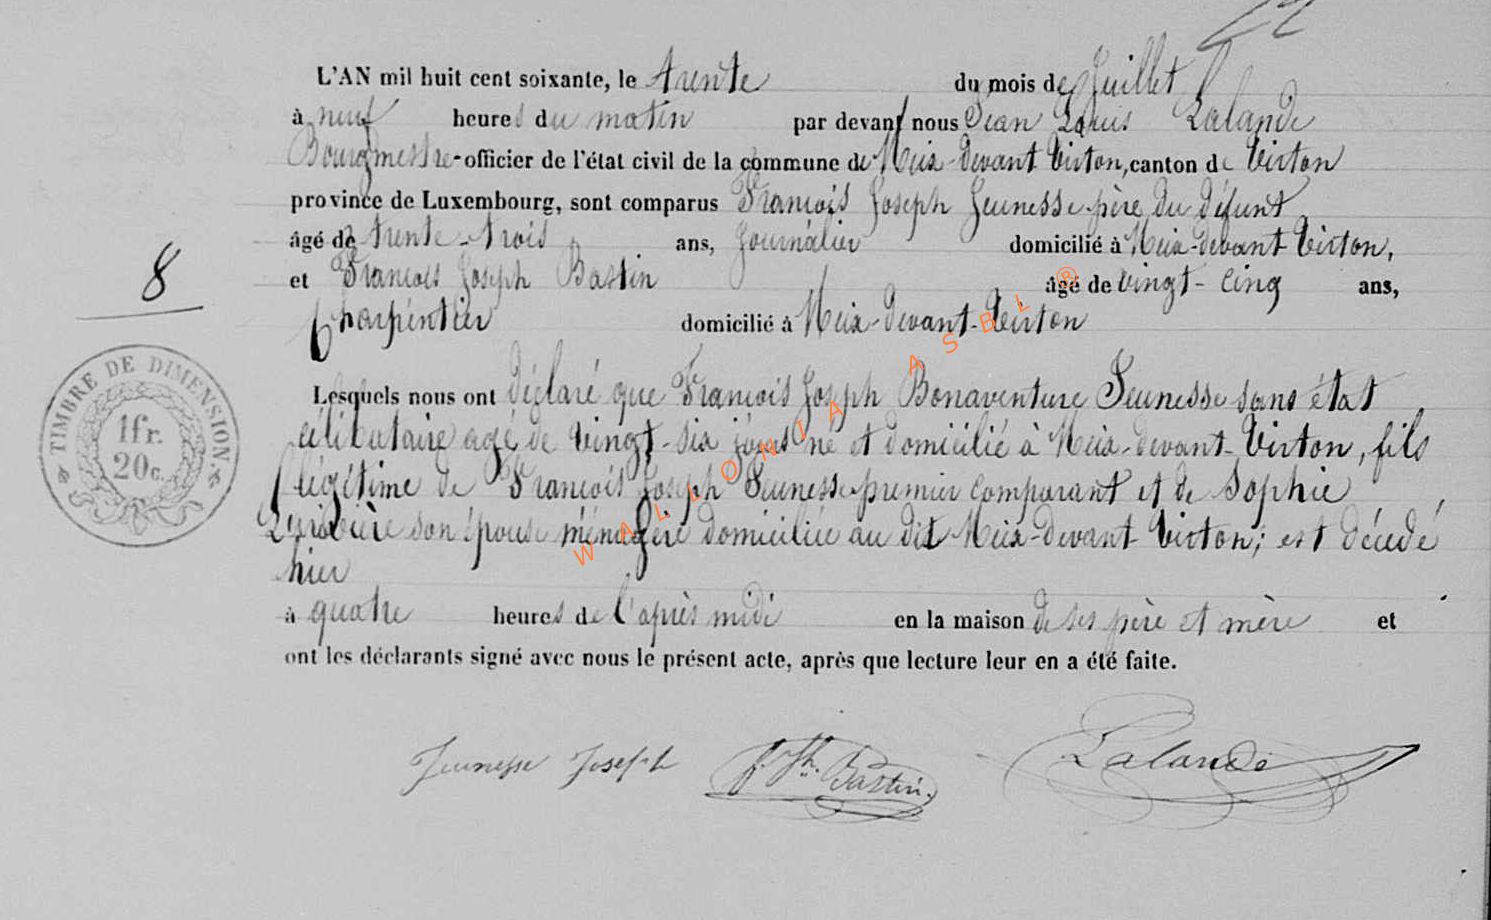 L'AN mil huit cent soixante, le trente du mois de Juillet
à neuf heures du matin par devant nous Jean Louis Lalande
Bourgmestre-officier de l'état civil de la commune de Meix-devant Virton, canton de Virton
province de Luxembourg, sont comparus François Joseph Jeunesse père du défunt
âgé de trente-trois ans, Journalier domicilié à Meix-devant Virton,
et François Joseph Bastin âgé de vingt-cinq ans,
Charpentier domicilié à Meix-devant-Virton
8
Lesquels nous ont déclaré que François Joseph Bonaventure Jeunesse sans état
célibataire agé de vingt-six jours né et domicilié à Meix-devant-Virton, fils
légitime de François Joseph Jeunesse premier comparant et de Sophie
son épouse ménagère domiciliée au dit Meix-devant Virton; est décedé
hier
à quatre heures de l'après midi en la maison de ses père et mère et
ont les déclarants signé avec nous le présent acte, après que lecture leur en a été faite.
TIMBRE DE DIMENSION
1 fr.
20 c.
Jeunesse Joseph f. Jh. Bastin. Lalande
WALLONIA ASBL ®